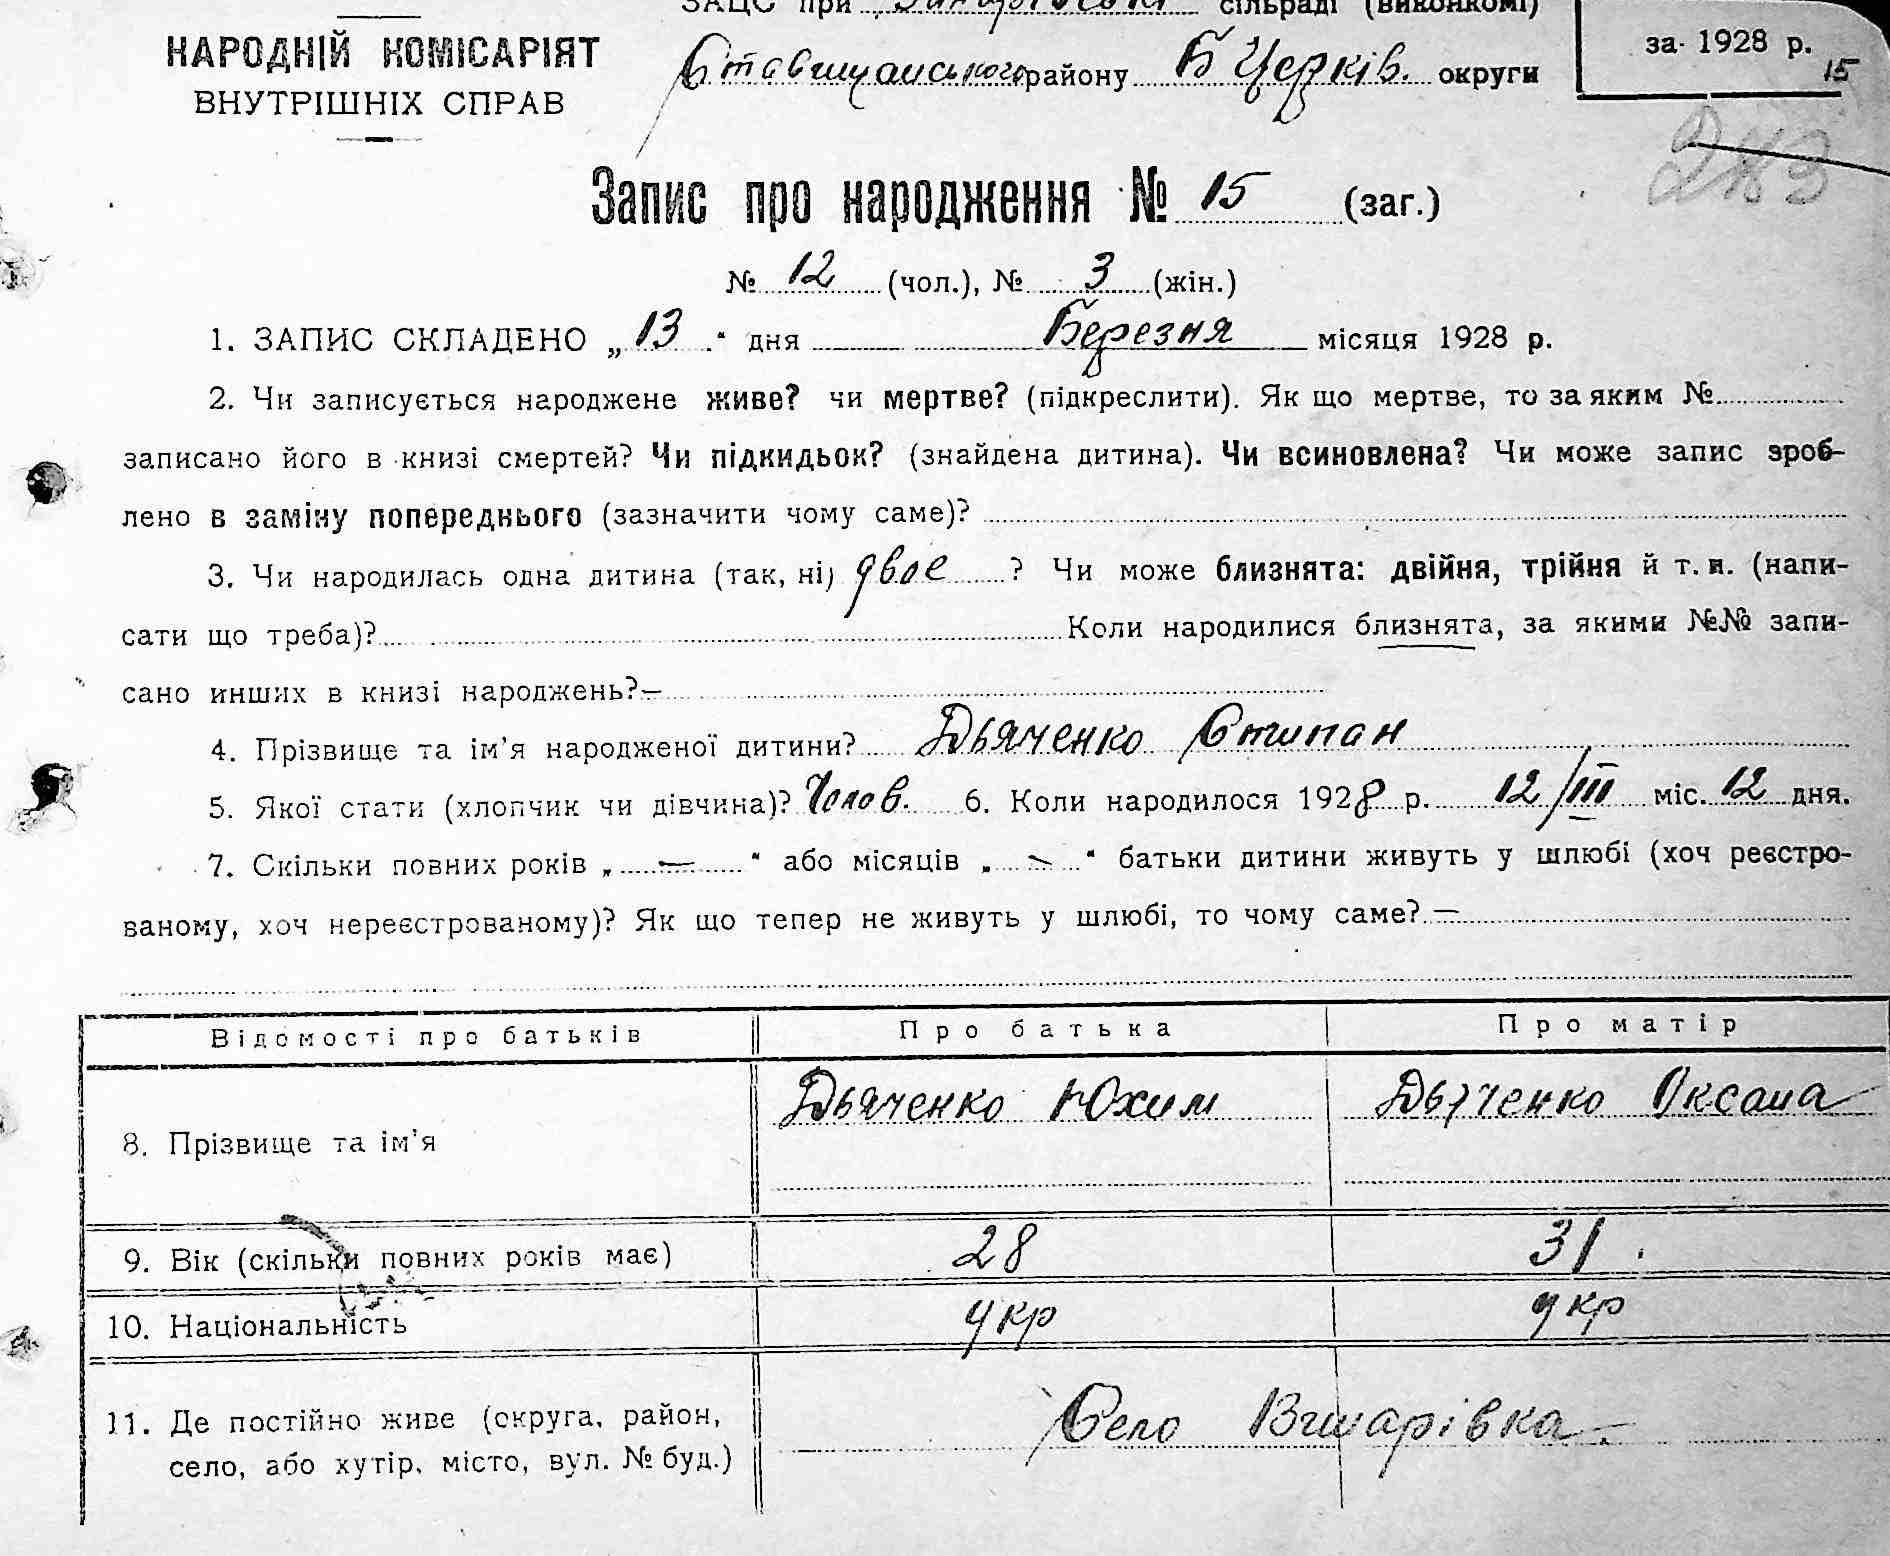 ЗАЦС при сільраді (виконкомі)
НАРОДНІЙ КОМІСАРІЯТ
ВНУТРІШНІХ СПРАВ
Ставищанського району Б Церків. округи
за 1928 р.
15
283
Запис про народження № 15 (заг.)
№ 12 (чол.), № 3 (жін.)
1. ЗАПИС СКЛАДЕНО „13“ дня Березня місяця 1928 р.
2. Чи записується народжене живе? чи мертве? (підкреслити). Як що мертве, то за яким №
записано його в книзі смертей? Чи підкидьок? (знайдена дитина). Чи всиновлена? Чи може запис зроб-
лено в заміну попереднього (зазначити чому саме)?
3. Чи народилась одна дитина (так, ні) двое ? Чи може близнята: двійня, трійня й т. и. (напи-
сати що треба)? Коли народилися близнята, за якими №№ запи-
сано инших в книзі народжень? —
4. Прізвище та ім'я народженої дитини? Дьяченко Стипан
5. Якої стати (хлопчик чи дівчина)? Чолов. 6. Коли народилося 1928 р. 12/III міс. 12 дня.
7. Скільки повних років „ — “ або місяців „ — “ батьки дитини живуть у шлюбі (хоч реєстро-
ваному, хоч нереєстрованому)? Як що тепер не живуть у шлюбі, то чому саме? —
Відомості про батьків Про батька Про матір
8. Прізвище та ім'я Дьяченко Юхим Дьяченко Оксана
9. Вік (скільки повних років має) 28 31.
10. Національність укр укр
11. Де постійно живе (округа, район,
село, або хутір, місто, вул. № буд.) Село